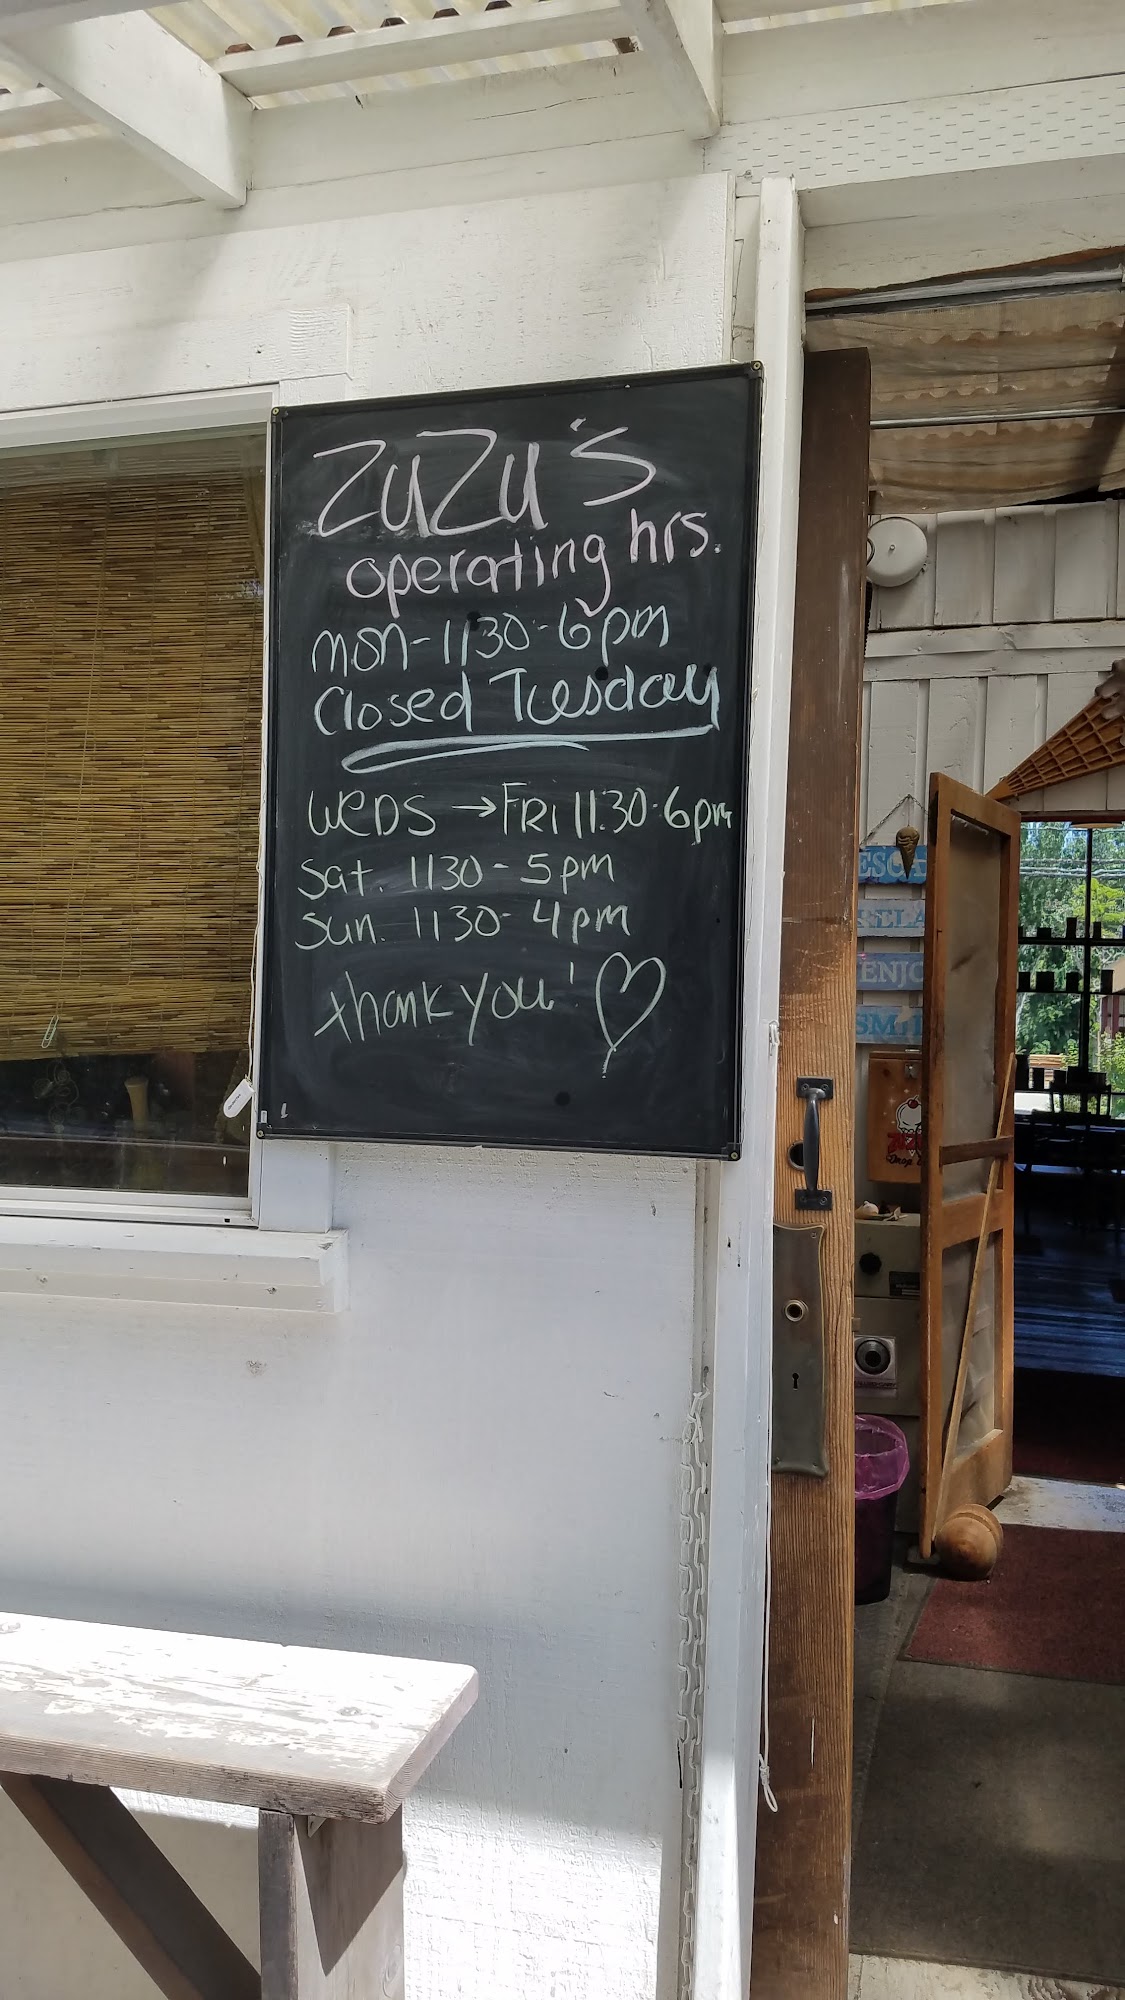 ZuZu's
operating hrs.
mon-1130-6pm
Closed Tuesday
WEDS → FRI 11:30-6pm
Sat. 1130-5pm
Sun. 1130-4pm
thank you! ♡
ESCA
RELA
ENJO
SMI